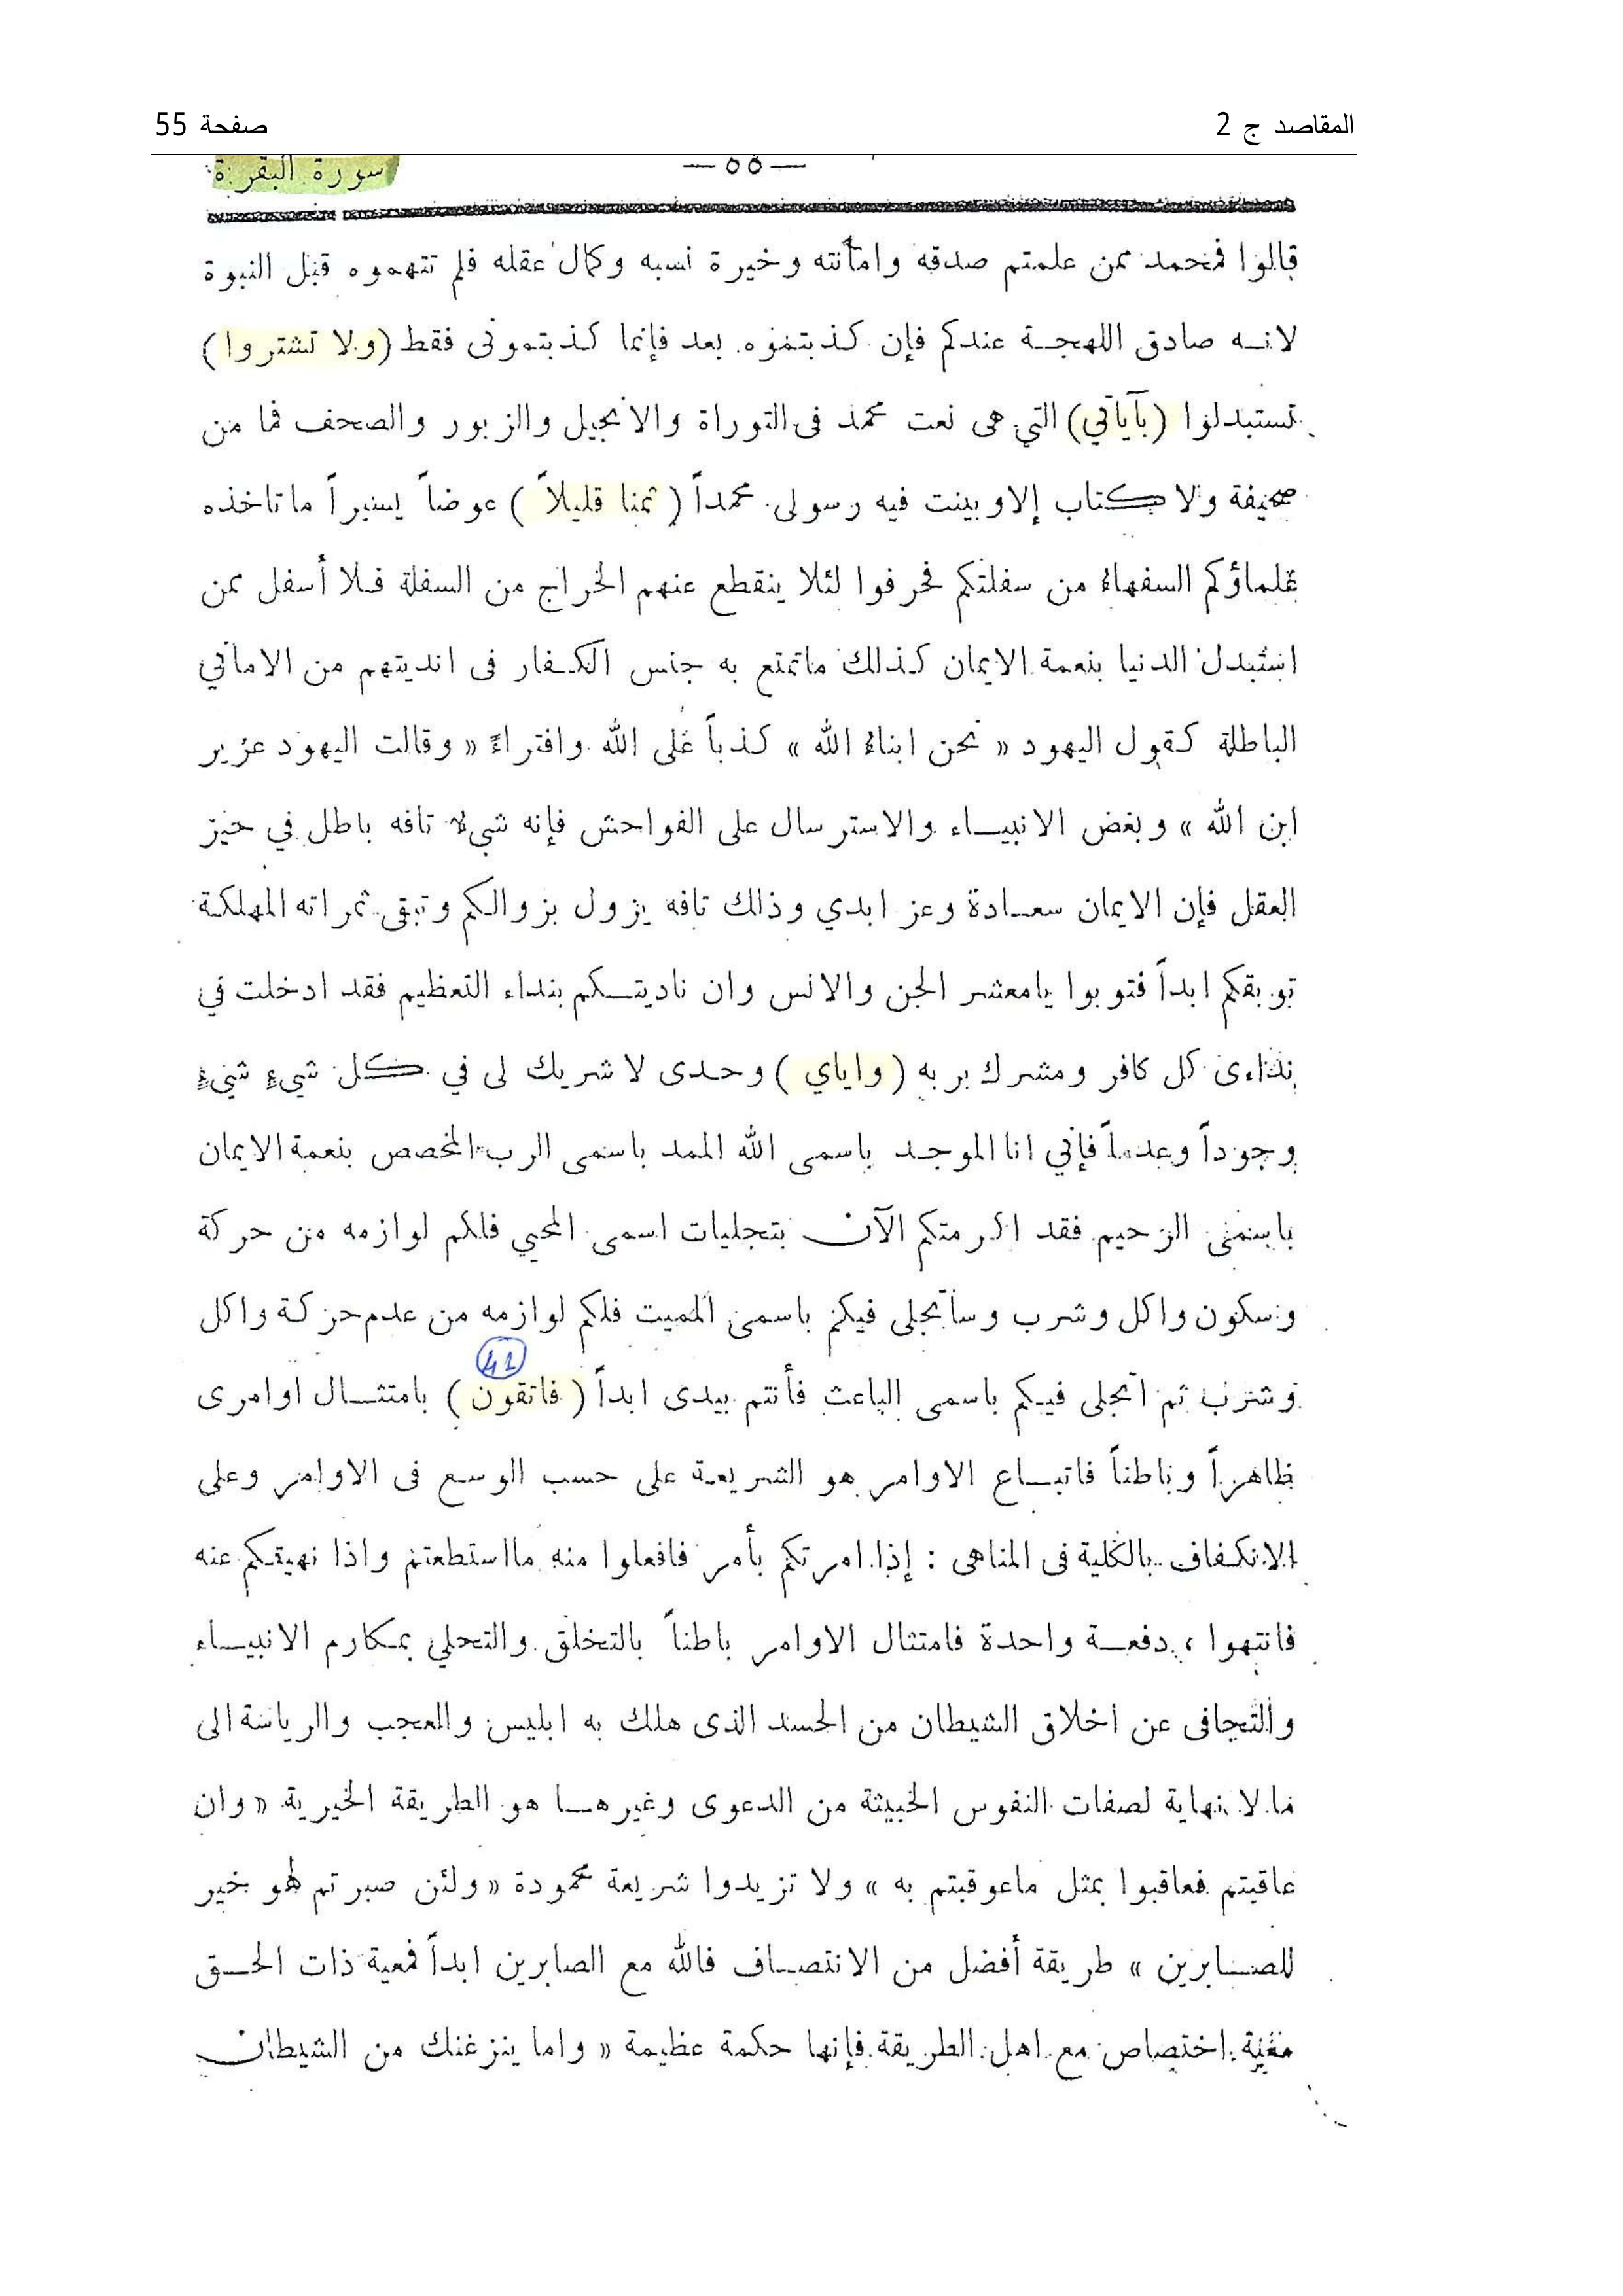 المقاصد ج 2 صفحة 55
— ٥٥ — سورة البقرة
قالوا فمحمد ممن علمتم صدقه وامأنته وخيرة نسبه وكمال عقله فلم تتهموه قبل النبوة
لانه صادق اللهجة عندكم فإن كذبتموه بعد فإنما كذبتمونى فقط (ولا تشتروا)
تستبدلوا (بآياتي) التي هى نعت محمد فى التوراة والانجيل والزبور والصحف فما من
صحيفة ولا كتاب إلا وبينت فيه رسولى محمداً (ثمنا قليلاً) عوضاً يسيراً ما تاخذه
علماؤكم السفهاء من سفلتكم فحرفوا لئلا ينقطع عنهم الخراج من السفلة فلا أسفل ممن
استبدل الدنيا بنعمة الايمان كذلك ماتمتع به جنس الكفار فى انديتهم من الاماني
الباطلة كقول اليهود « نحن ابناء الله » كذباً على الله وافتراءً « وقالت اليهود عزير
ابن الله » وبغض الانبياء والاسترسال على الفواحش فإنه شيء تافه باطل في حيز
العقل فإن الايمان سعادة وعز ابدي وذلك تافه يزول بزوالكم وتبقى ثمراته المهلكة
توبقكم ابداً فتوبوا يامعشر الجن والانس وان ناديتكم بنداء التعظيم فقد ادخلت في
نداءى كل كافر ومشرك بربه (واياي) وحدى لا شريك لى في كل شيءٍ شيءٍ
وجوداً وعدماً فإني انا الموجد باسمى الله الممد باسمى الرب المخصص بنعمة الايمان
باسمى الرحيم فقد اكرمتكم الآن بتجليات اسمى المحيي فلكم لوازمه من حركة
وسكون واكل وشرب وسأتجلى فيكم باسمى المميت فلكم لوازمه من عدم حركة واكل
41
وشرب ثم اتجلى فيكم باسمى الباعث فأنتم بيدى ابداً (فاتقون) بامتثال اوامرى
ظاهراً وباطناً فاتباع الاوامر هو الشريعة على حسب الوسع فى الاوامر وعلى
الانكفاف بالكلية فى المناهى : إذا امرتكم بأمر فافعلوا منه مااستطعتم واذا نهيتكم عنه
فانتهوا ، دفعة واحدة فامتثال الاوامر باطناً بالتخلق والتحلي بمكارم الانبياء
والتجافى عن اخلاق الشيطان من الحسد الذى هلك به ابليس والعجب والرياسة الى
ما لا نهاية لصفات النفوس الخبيثة من الدعوى وغيرها هو الطريقة الخيرية « وان
عاقبتم فعاقبوا بمثل ماعوقبتم به » ولا تزيدوا شريعة محمودة « ولئن صبرتم لهو خير
للصابرين » طريقة أفضل من الانتصاف فالله مع الصابرين ابداً فمعية ذات الحق
معية اختصاص مع اهل الطريقة فإنها حكمة عظيمة « واما ينزغنك من الشيطان